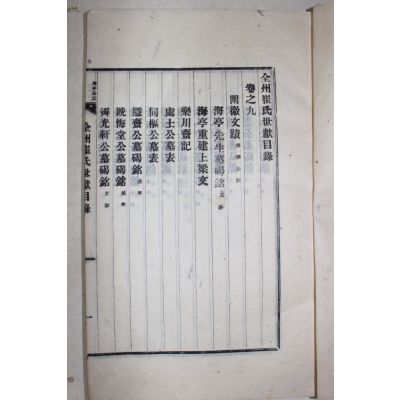 全州崔氏世獻目錄
卷之九
闡徽文蹟
海亭先生墓碣銘 並序
海亭重建上梁文
樂川齋記
處士公墓表
同樞公墓表
隱齋公墓碣銘 並序
晩悔堂公墓碣銘 並序
霽光軒公墓碣銘
全州崔氏世獻目錄
一